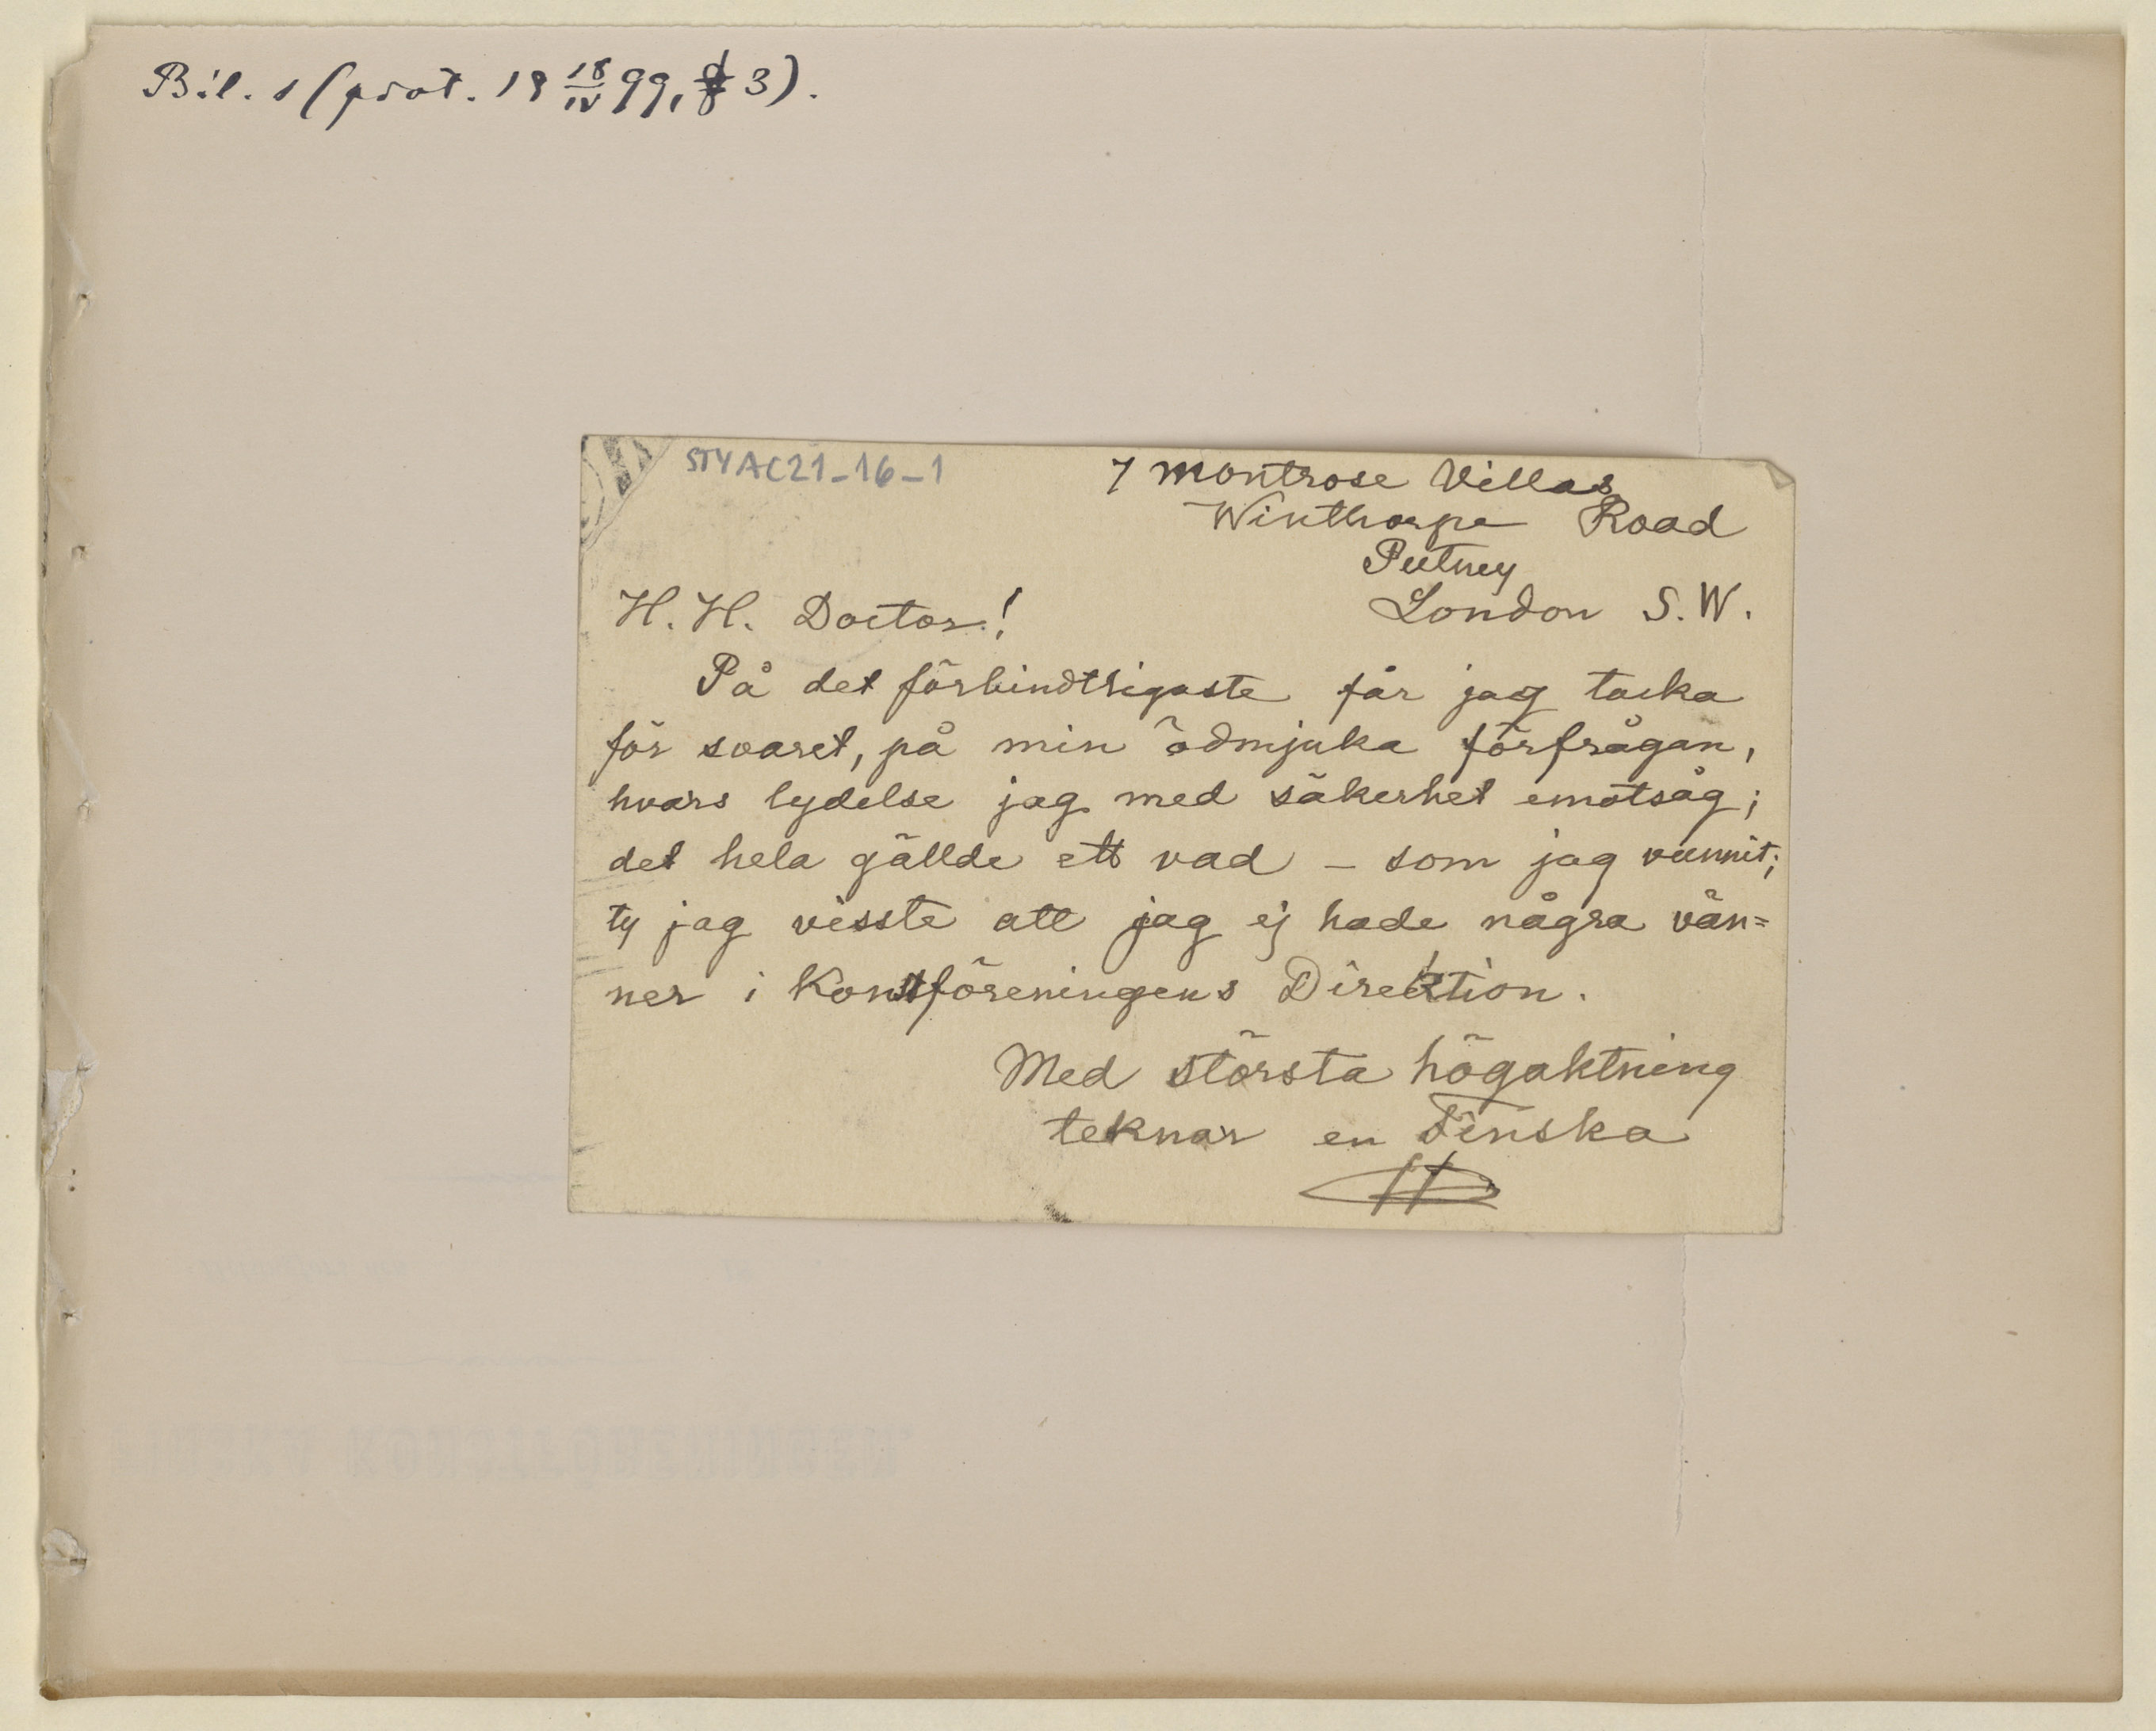 Bil. 1 (prot. 18 18/IV 99, § 3).
STYAC21-16-1
7 Montrose Villas
Winthorpe Road
Putney
London S.W.
H. H. Doctor!
På det förbindtligaste får jag tacka
för svaret, på min ödmjuka förfrågan,
hvars lydelse jag med säkerhet emotsåg;
det hela gällde ett vad – som jag vunnit;
ty jag visste att jag ej hade några vän=
ner i Konstföreningens Direktion.
Med största högaktning
teknar en Finska